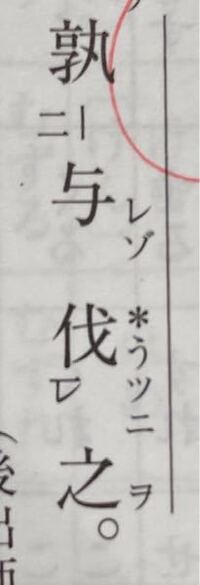 レゾ *うツニ ヲ
孰二-与伐レ之。
（後出師